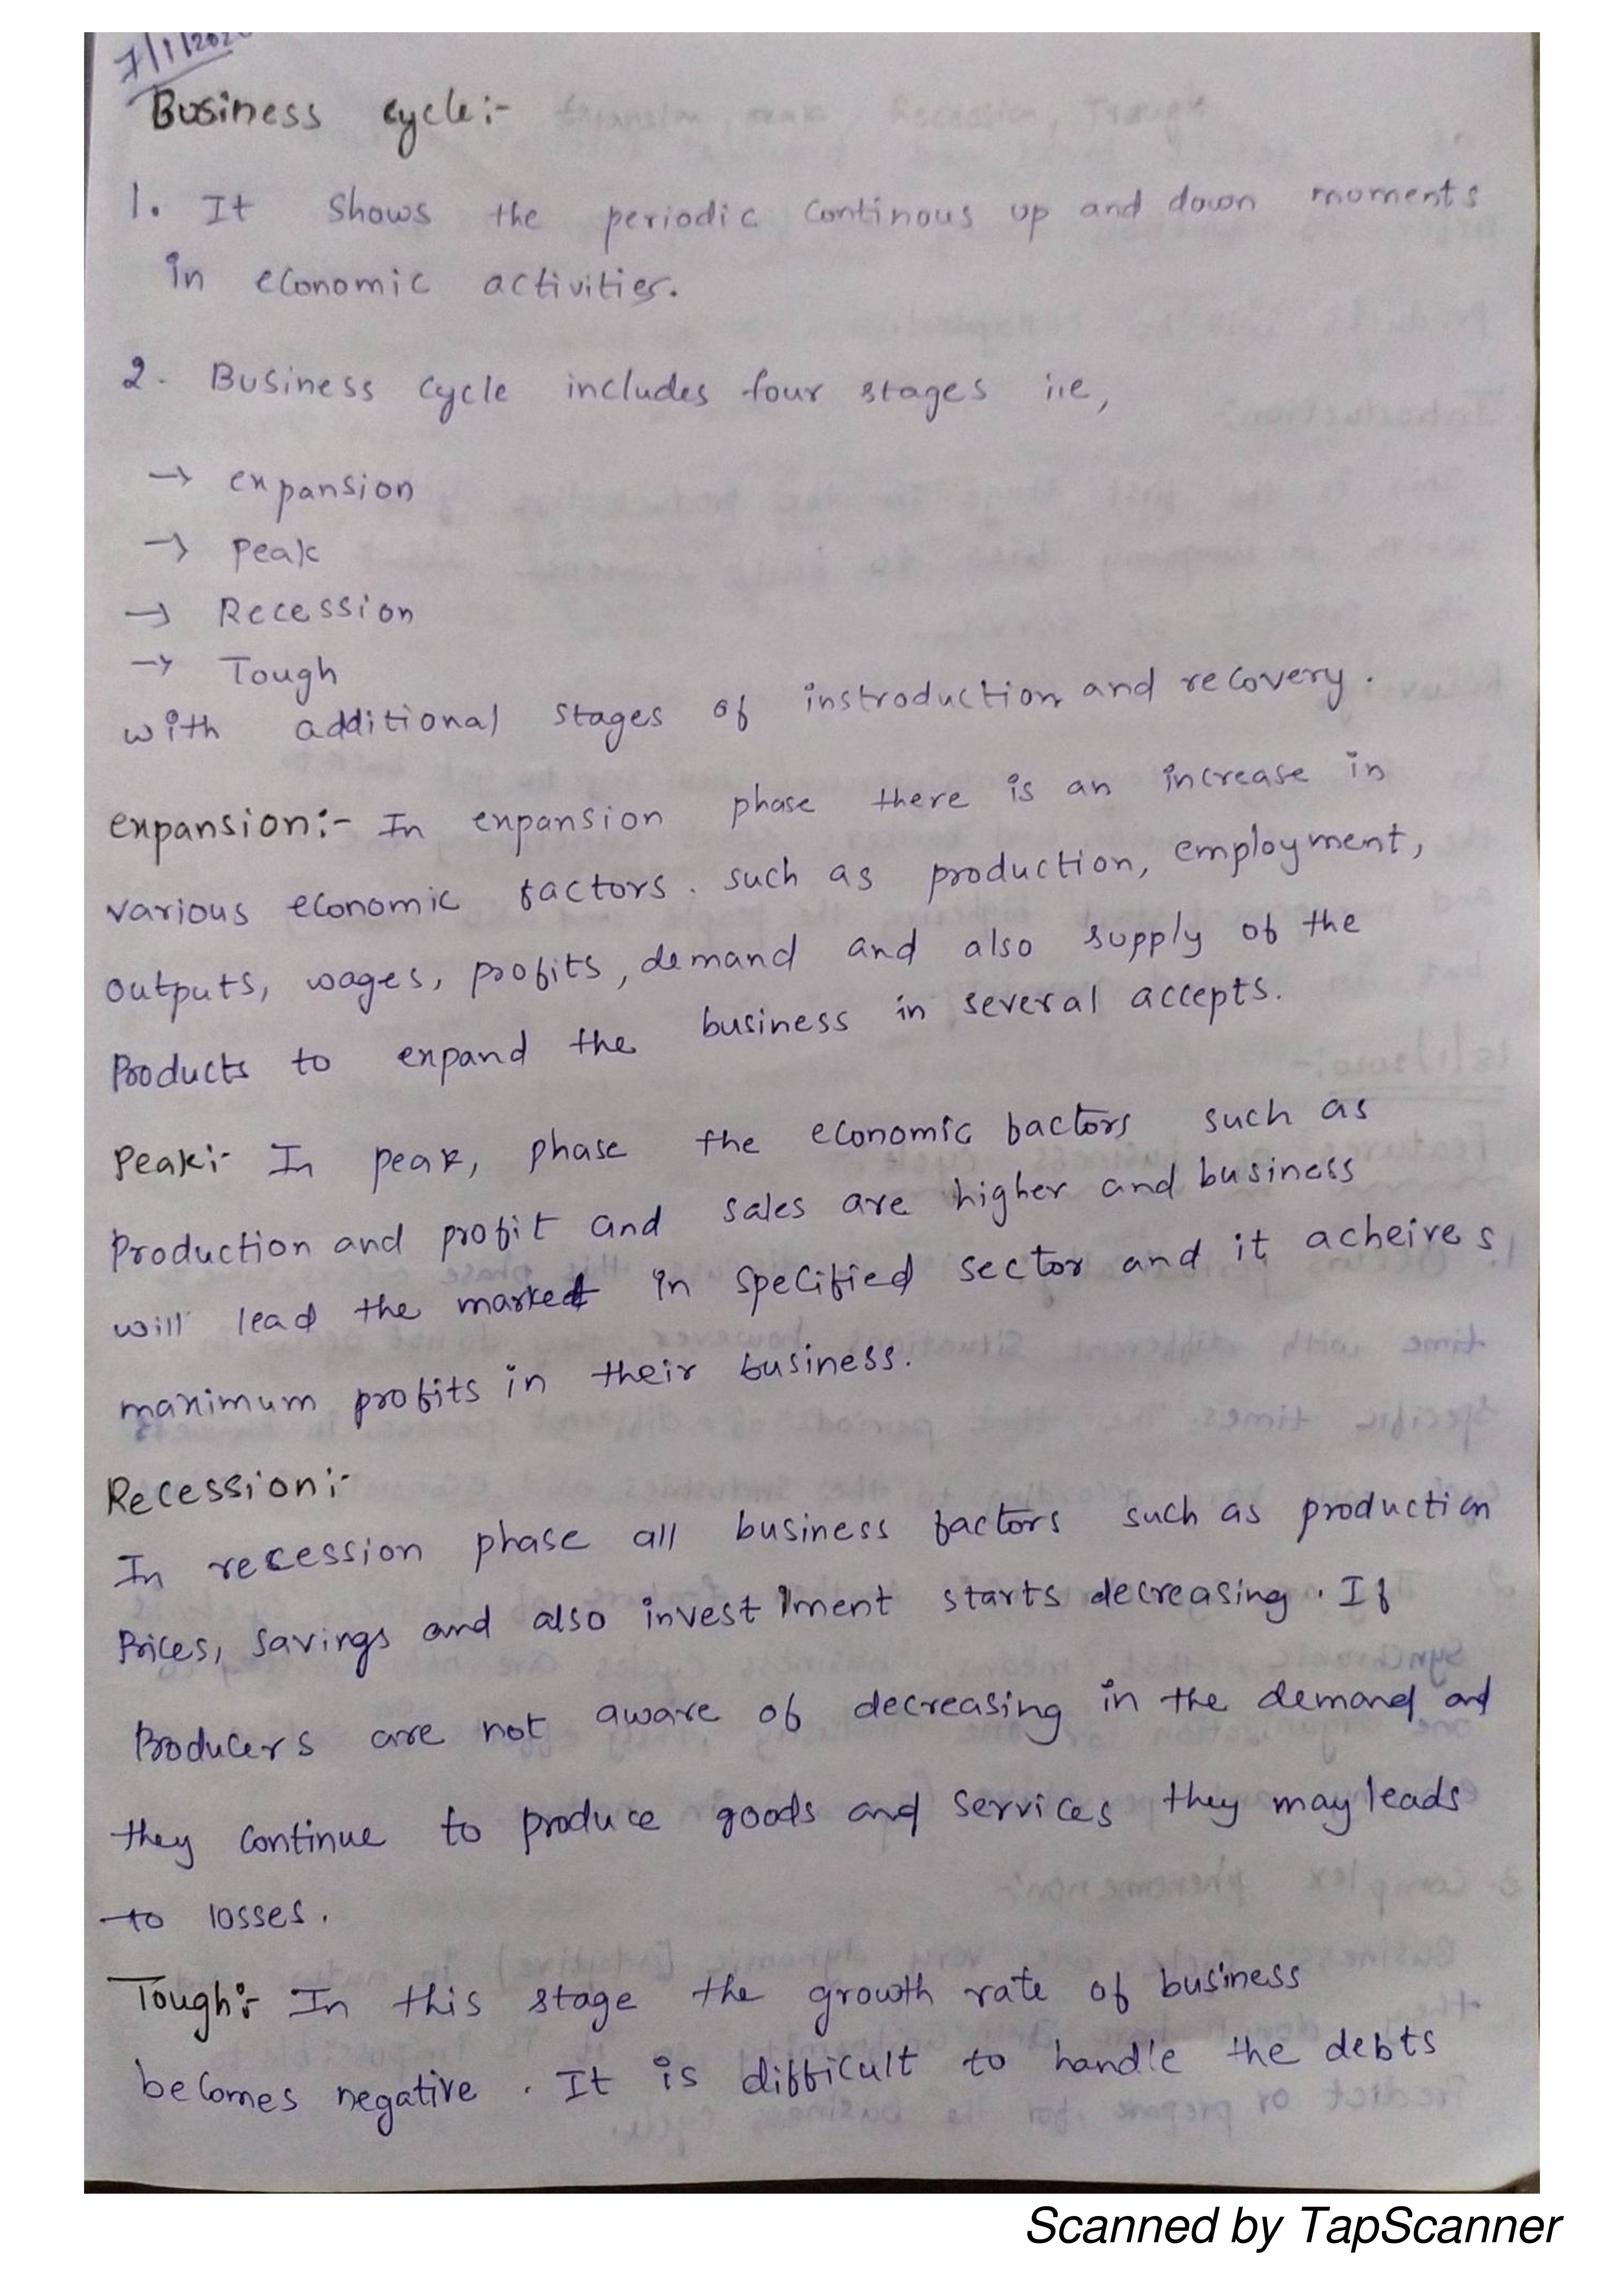 Business cycle:-
1. It shows the periodic continous up and down moments
in economic activities.
2. Business cycle includes four stages i.e,
→ expansion
→ peak
→ Recession
→ Tough
with additional stages of instroduction and recovery.
expansion:- In expansion phase there is an increase in
various economic factors. such as production, employment,
outputs, wages, profits, demand and also supply of the
Products to expand the business in several accepts.
Peak:- In peak, phase the economic factors such as
production and profit and sales are higher and business
will lead the market in specified sector and it acheives
maximum profits in their business.
Recession:-
In recession phase all business factors such as production
Prices, savings and also investment starts decreasing. If
Producers are not aware of decreasing in the demand and
they continue to produce goods and services they may leads
to losses.
Tough:- In this stage the growth rate of business
becomes negative. It is difficult to handle the debts
Scanned by TapScanner